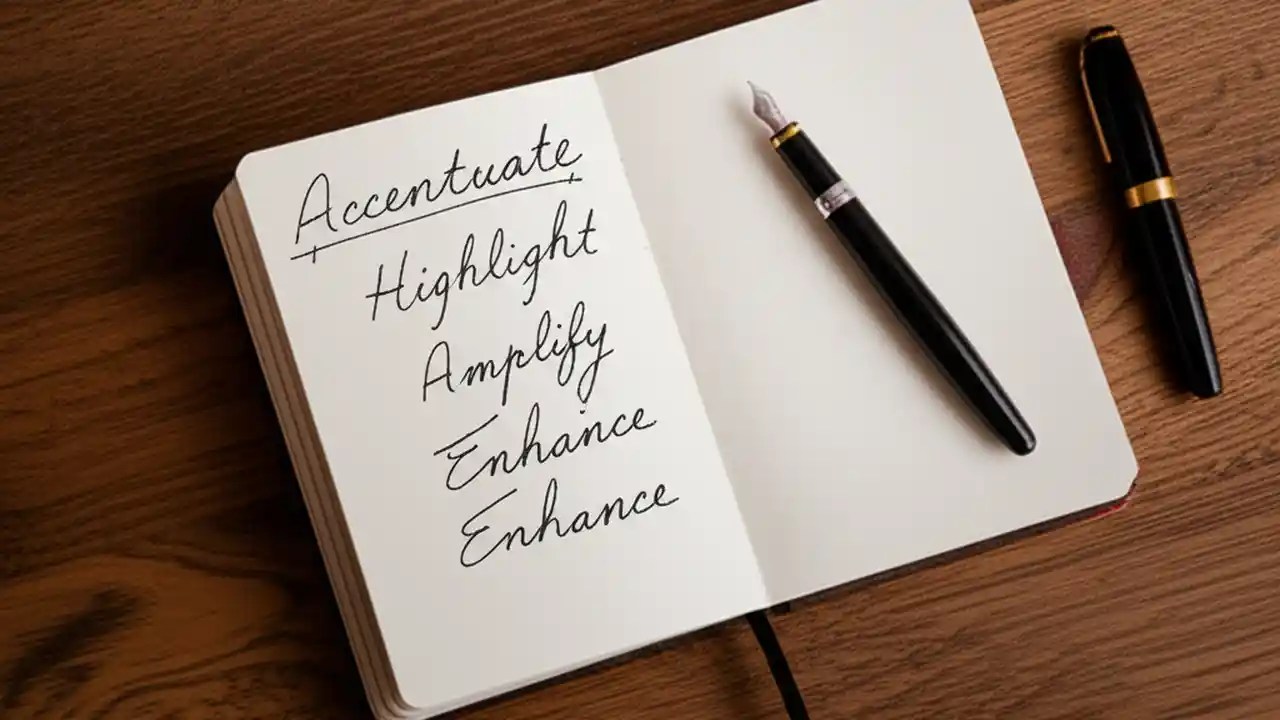 Accentuate
Highlight
Amplify
Enhance
Enhance